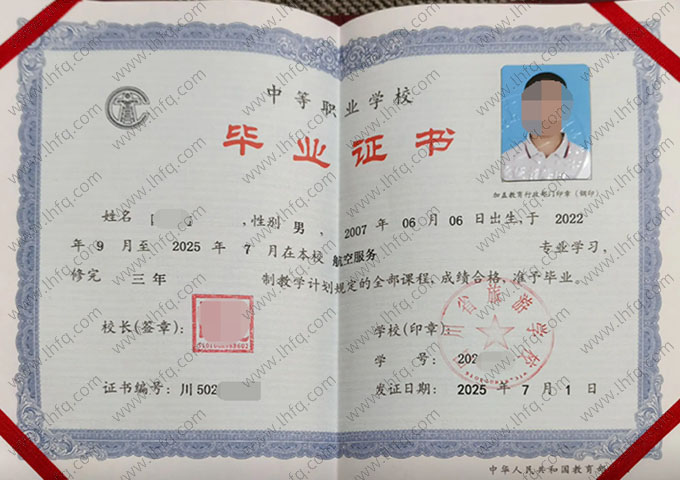 中等职业学校
毕业证书
加盖教育行政部门印章（钢印）
姓名 ,性别 男 , 2007 年 06 月 06 日出生,于 2022
年 9 月至 2025 年 7 月在本校 航空服务 专业学习,
修完 三年 制教学计划规定的全部课程,成绩合格,准予毕业。
校长(签章):
学校(印章):
学 号: 202
证书编号: 川 502
发证日期: 2025 年 7 月 1 日
中华人民共和国教育部
www.lhfq.com